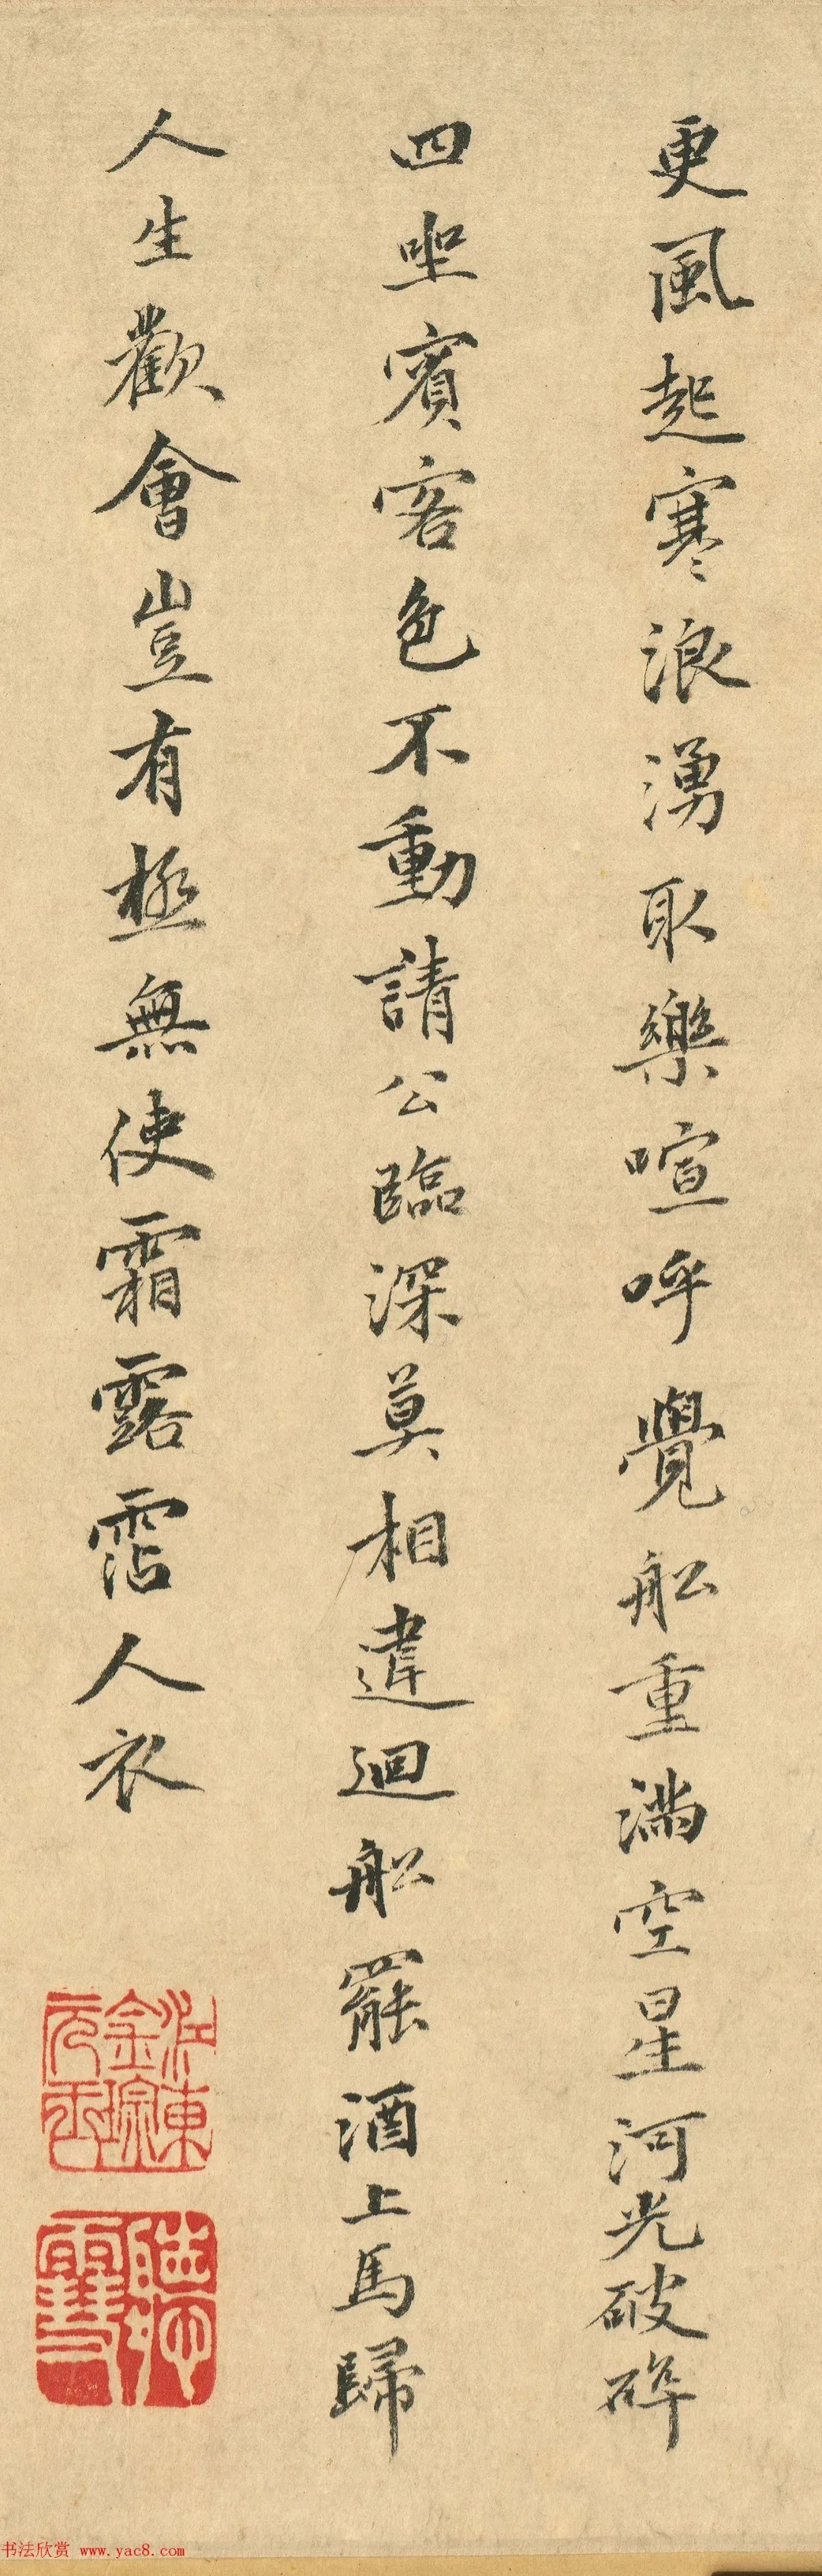 更風起寒浪湧取樂喧呼覺舩重滿空星河光破碎
四坐賓客色不動請公臨深莫相違迴舩罷酒上馬歸
人生歡會豈有極無使霜露霑人衣
书法欣赏 www.yac8.com